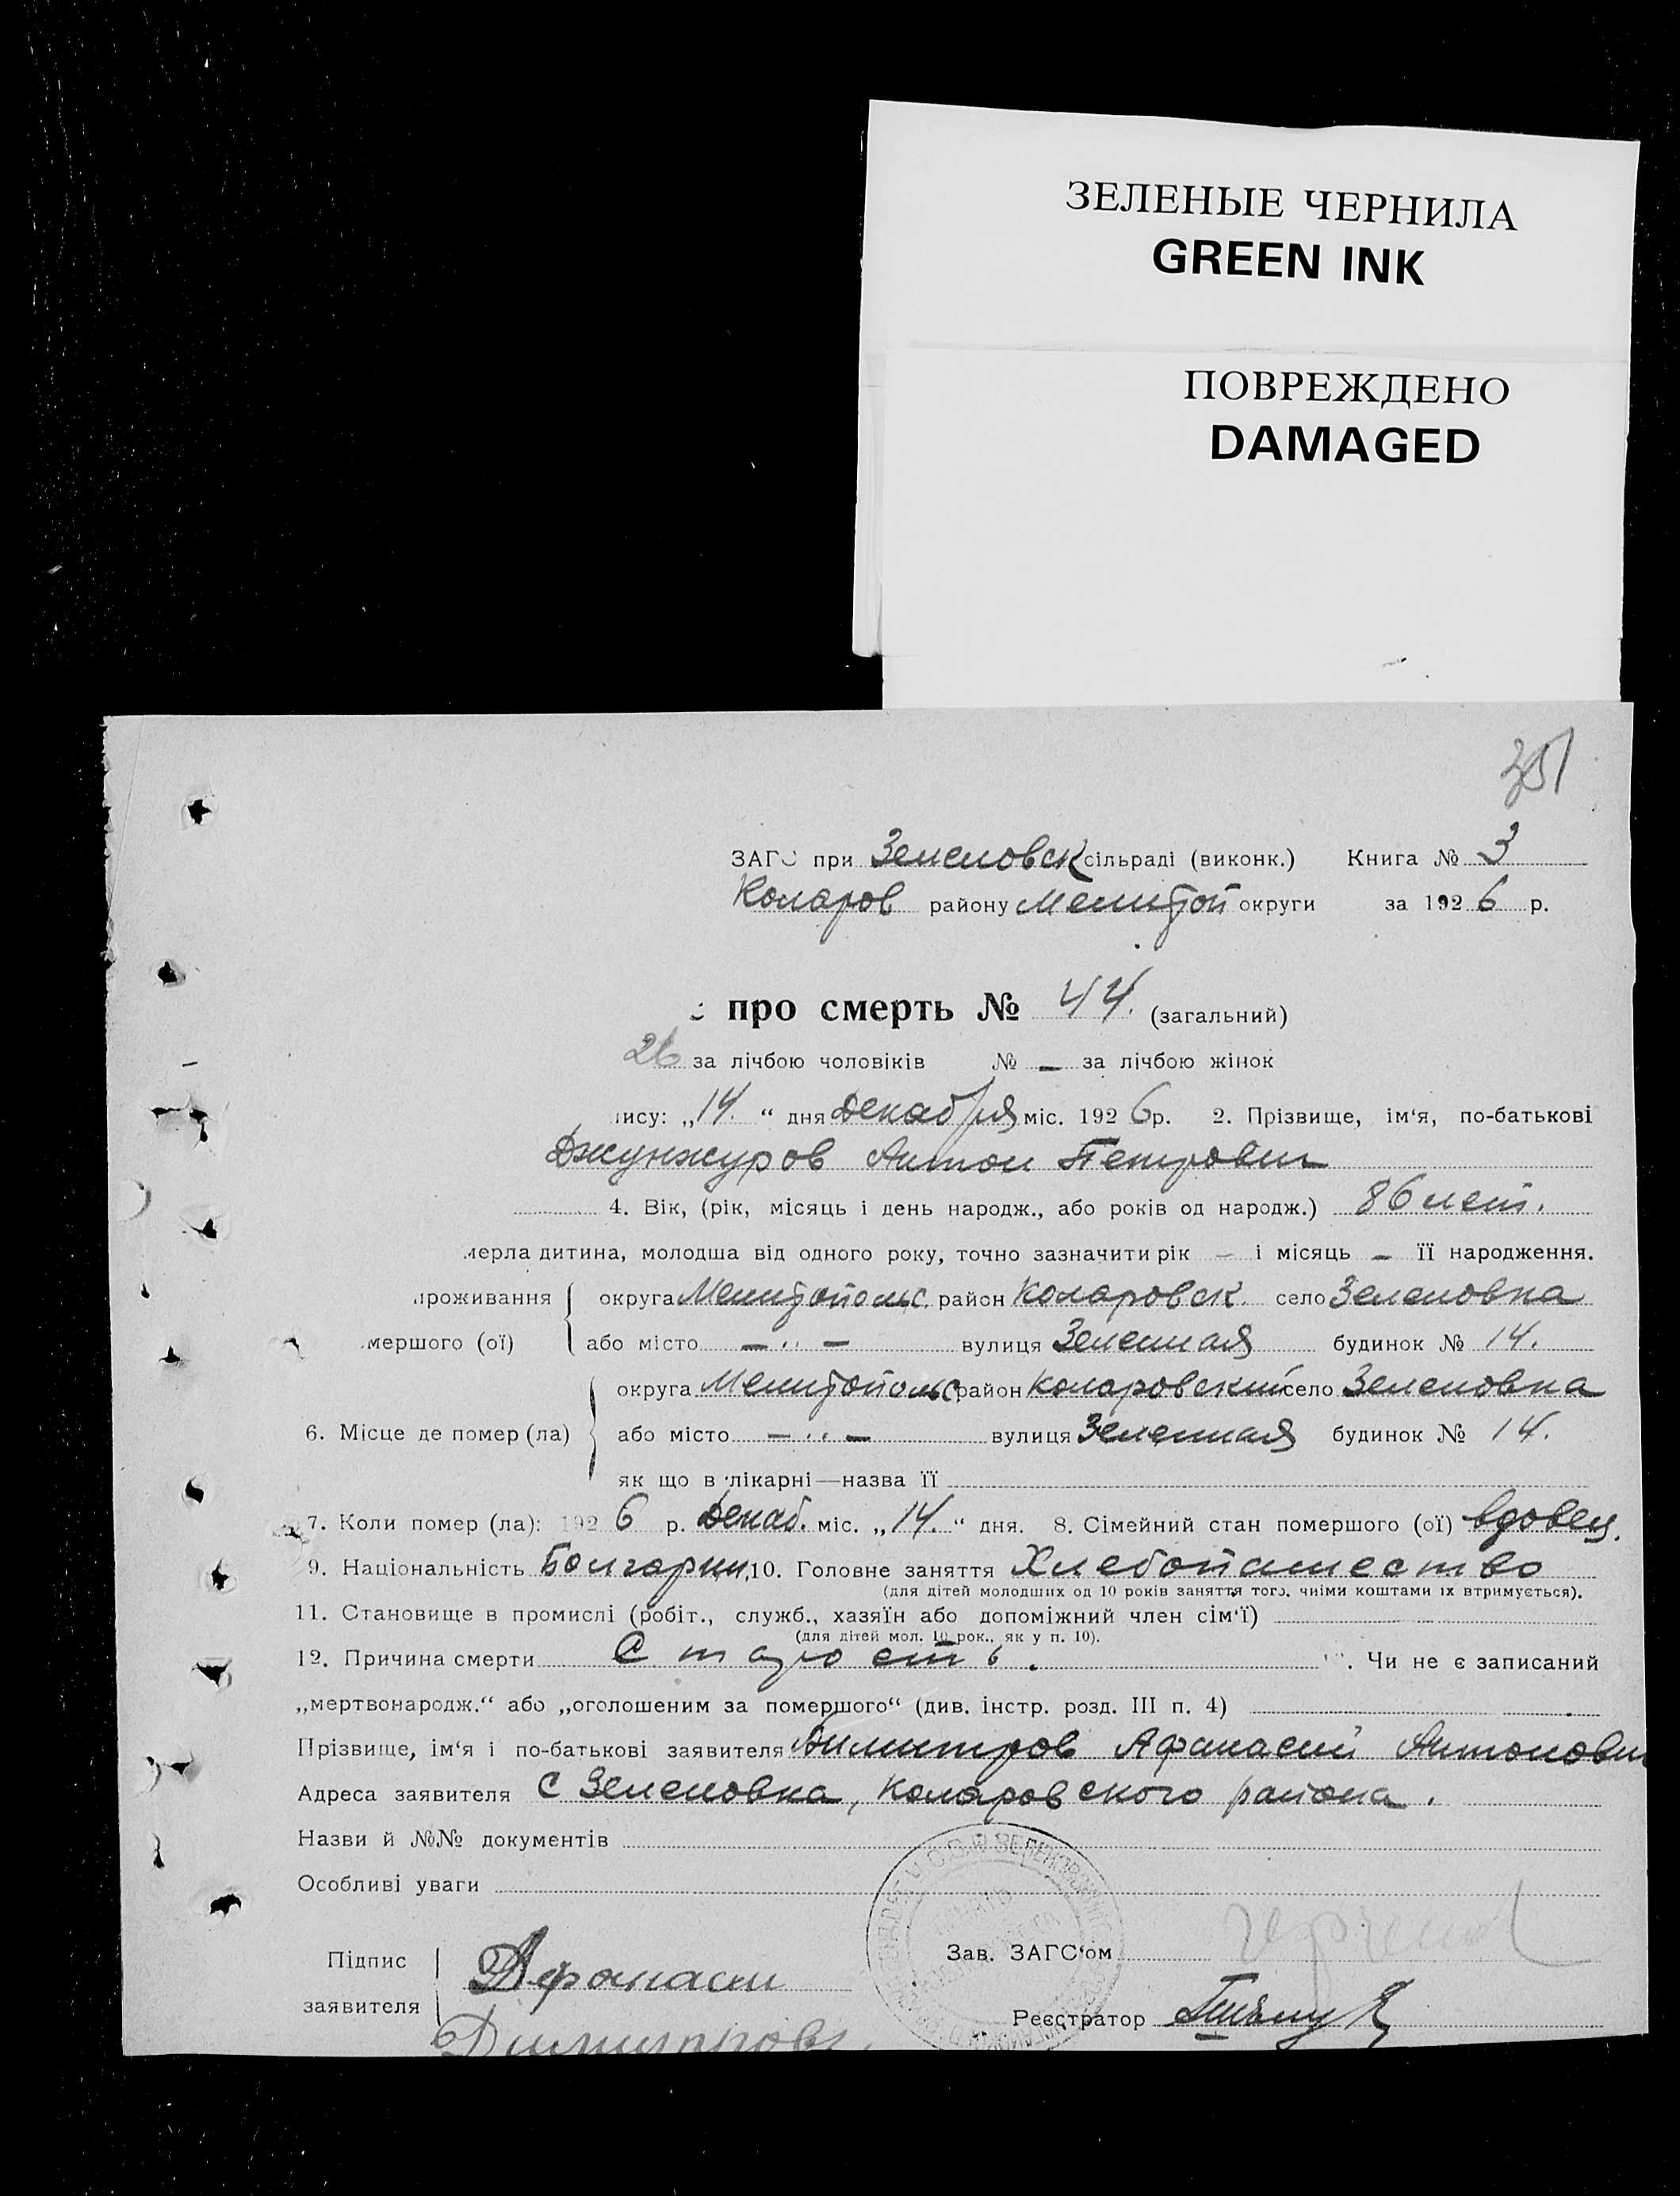 ЗЕЛЕНЫЕ ЧЕРНИЛА
GREEN INK
ПОВРЕЖДЕНО
DAMAGED
351
ЗАГС при Зеленовск сільраді (виконк.) Книга № 3
Коларов району Мелитоп округи за 1926 р.
про смерть № 44. (загальний)
26 за лічбою чоловіків № — за лічбою жінок
ису: „14.“ дня Декабря міс. 1926 р. 2. Прізвище, ім‘я, по-батькові
Джунжуров Антон Петрович
4. Вік, (рік, місяць і день народж., або років од народж.) 86 лет.
мерла дитина, молодша від одного року, точно зазначити рік — і місяць — її народження.
проживання округа Мелитопольс. район Коларовск. село Зеленовка
мершого (ої) або місто — „ — вулиця Зеленная будинок № 14.
округа Мелитопольс район Коларовский село Зеленовка
6. Місце де помер (ла) або місто — „ — вулиця Зеленная будинок № 14.
як що в лікарні—назва її
7. Коли помер (ла): 1926 р. Декаб. міс. „14.“ дня. 8. Сімейний стан помершого (ої) вдовец.
9. Національність Болгарин. 10. Головне заняття Хлебопашество
(для дітей молодших од 10 років заняття того, чиїми коштами їх втримується).
11. Становище в промислі (робіт., служб., хазяїн або допоміжний член сім‘ї)
(для дітей мол. 10 рок., як у п. 10).
12. Причина смерти Старость. Чи не є записаний
„мертвонародж.“ або „оголошеним за помершого“ (див. інстр. розд. III п. 4)
Прізвище, ім‘я і по-батькові заявителя Димитров Афанасий Антонович
Адреса заявителя С Зеленовка, Коларовского района.
Назви й №№ документів
Особливі уваги
Підпис заявителя Афанаси
Димитровъ
Зав. ЗАГС‘ом
Реєстратор